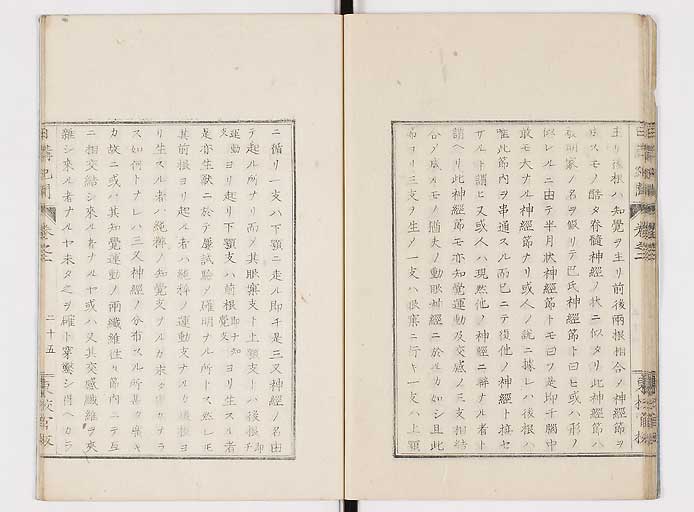 主リ後根ハ知覺ヲ主リ前後兩根相合ノ神經節ヲ
生スモノ酷タ脊髓神經ノ状ニ似タリ此神經節ハ
發明家ノ名ヲ假リテ氏神經節ト曰ヒ或ハ形ノ
似レルニ由テ半月狀神經節トモ曰フ是即千腦中
最モ大ナル神經節ナリ或人ノ說ニ據レハ後根ハ
惟此節内ヲ串通スル而已ニテ復他ノ神經ト接セ
サルト謂ヒ又或人ハ現然他ノ神經ニ聯ナル者ト
謂ヘリ此神經節モ亦知覺運動及交感ノ三支相結
合ノ成ルモノ猶夫ノ動眼神經ニ於ルカ如シ且此
節ヨリ三支ヲ生ノ一支ハ眼窠ニ行キ一支ハ上顎
ニ循リ一支ハ下顎ニ走ル即千是三叉神經ノ名由
テ起ル所ナリ而メ其眼窠支ト上顎支トハ後根即チ
運動支ヨリ起リ下顎支ハ前根即ナ知覺支ヨリ生スル者
是亦生獸ニ於テ嚴試驗ノ確明ナル所トス然レモ
其前根ヨリ起ル者ハ純粹ノ運動支ナルカ後根ヨ
リ生スル者ハ純粹ノ知覺支ナルカ未タ
ス如何トナレハ三叉神經ノ分布スル所
カ故ニ或ハ其知覺運動ノ兩纖維往々節内ニテ互
ニ相交結シ來ル者ナルヤ或ハ又其交感纖維ヲ夾
雜シ來ル者ナルヤ未タ之ヲ確ト穿鑿シ得ヘカラ
日講記聞
卷之二
二十五